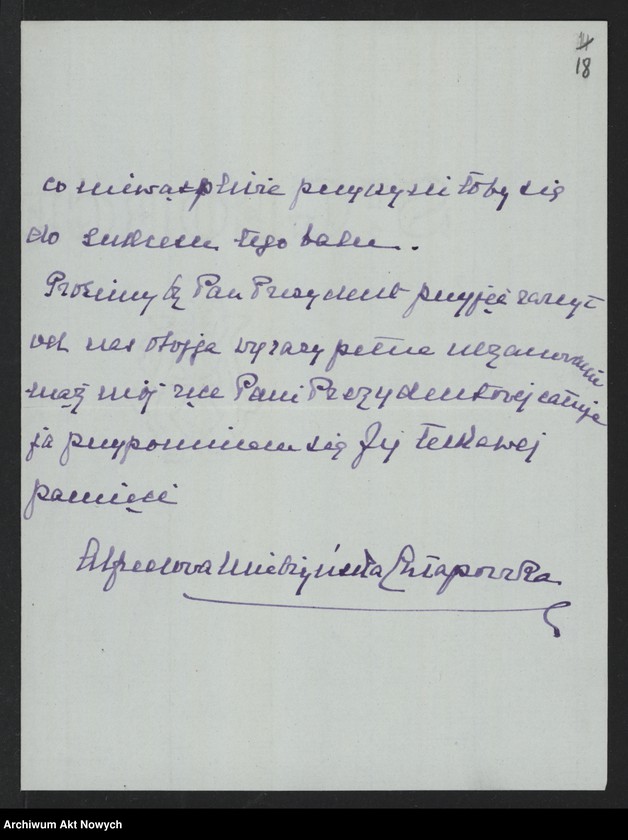 18
co niewątpliwie przyczyniłoby się
do sukcesu tego balu.
Prosimy by Pan Prezydent przyjąć raczył
od nas obojga wyrazy pełne uszanowania
mąż mój ręce Pani Prezydentowej całuje
ja przypominam się Jej łaskawej
pamięci
Alfredowa Chłapowska
Archiwum Akt Nowych